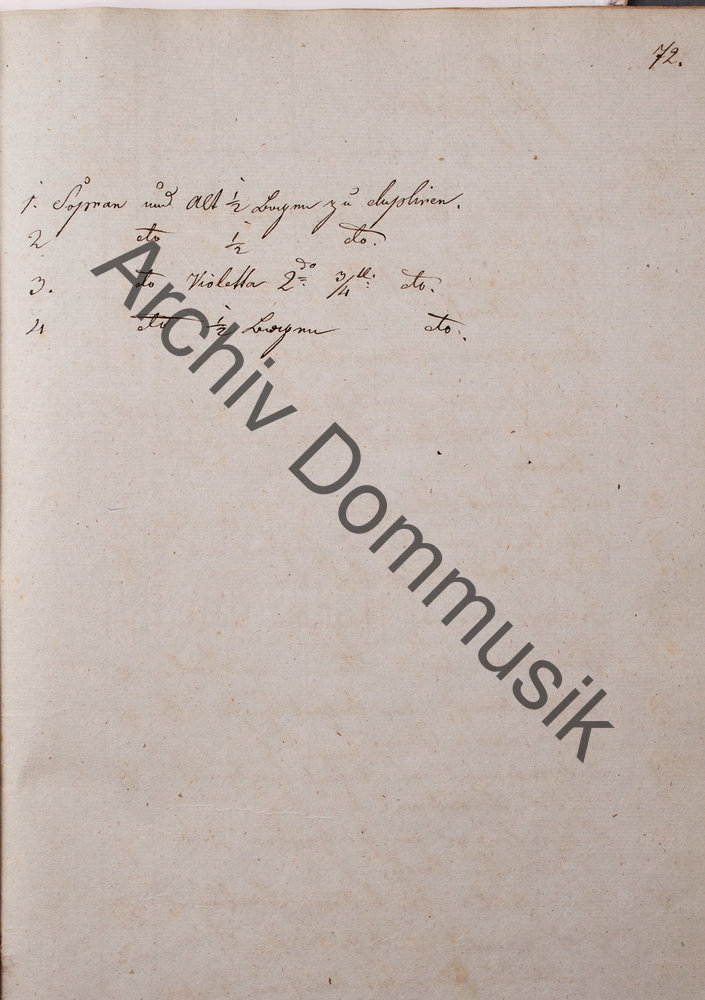 72.
1. Sopran und Alt 1/2 Bogen zu dupliren.
2 dto 1/2 dto.
3. dto Violetta 2do 3/4tl: dto.
4 dto 1/2 Bogen dto.
Archiv Dommusik